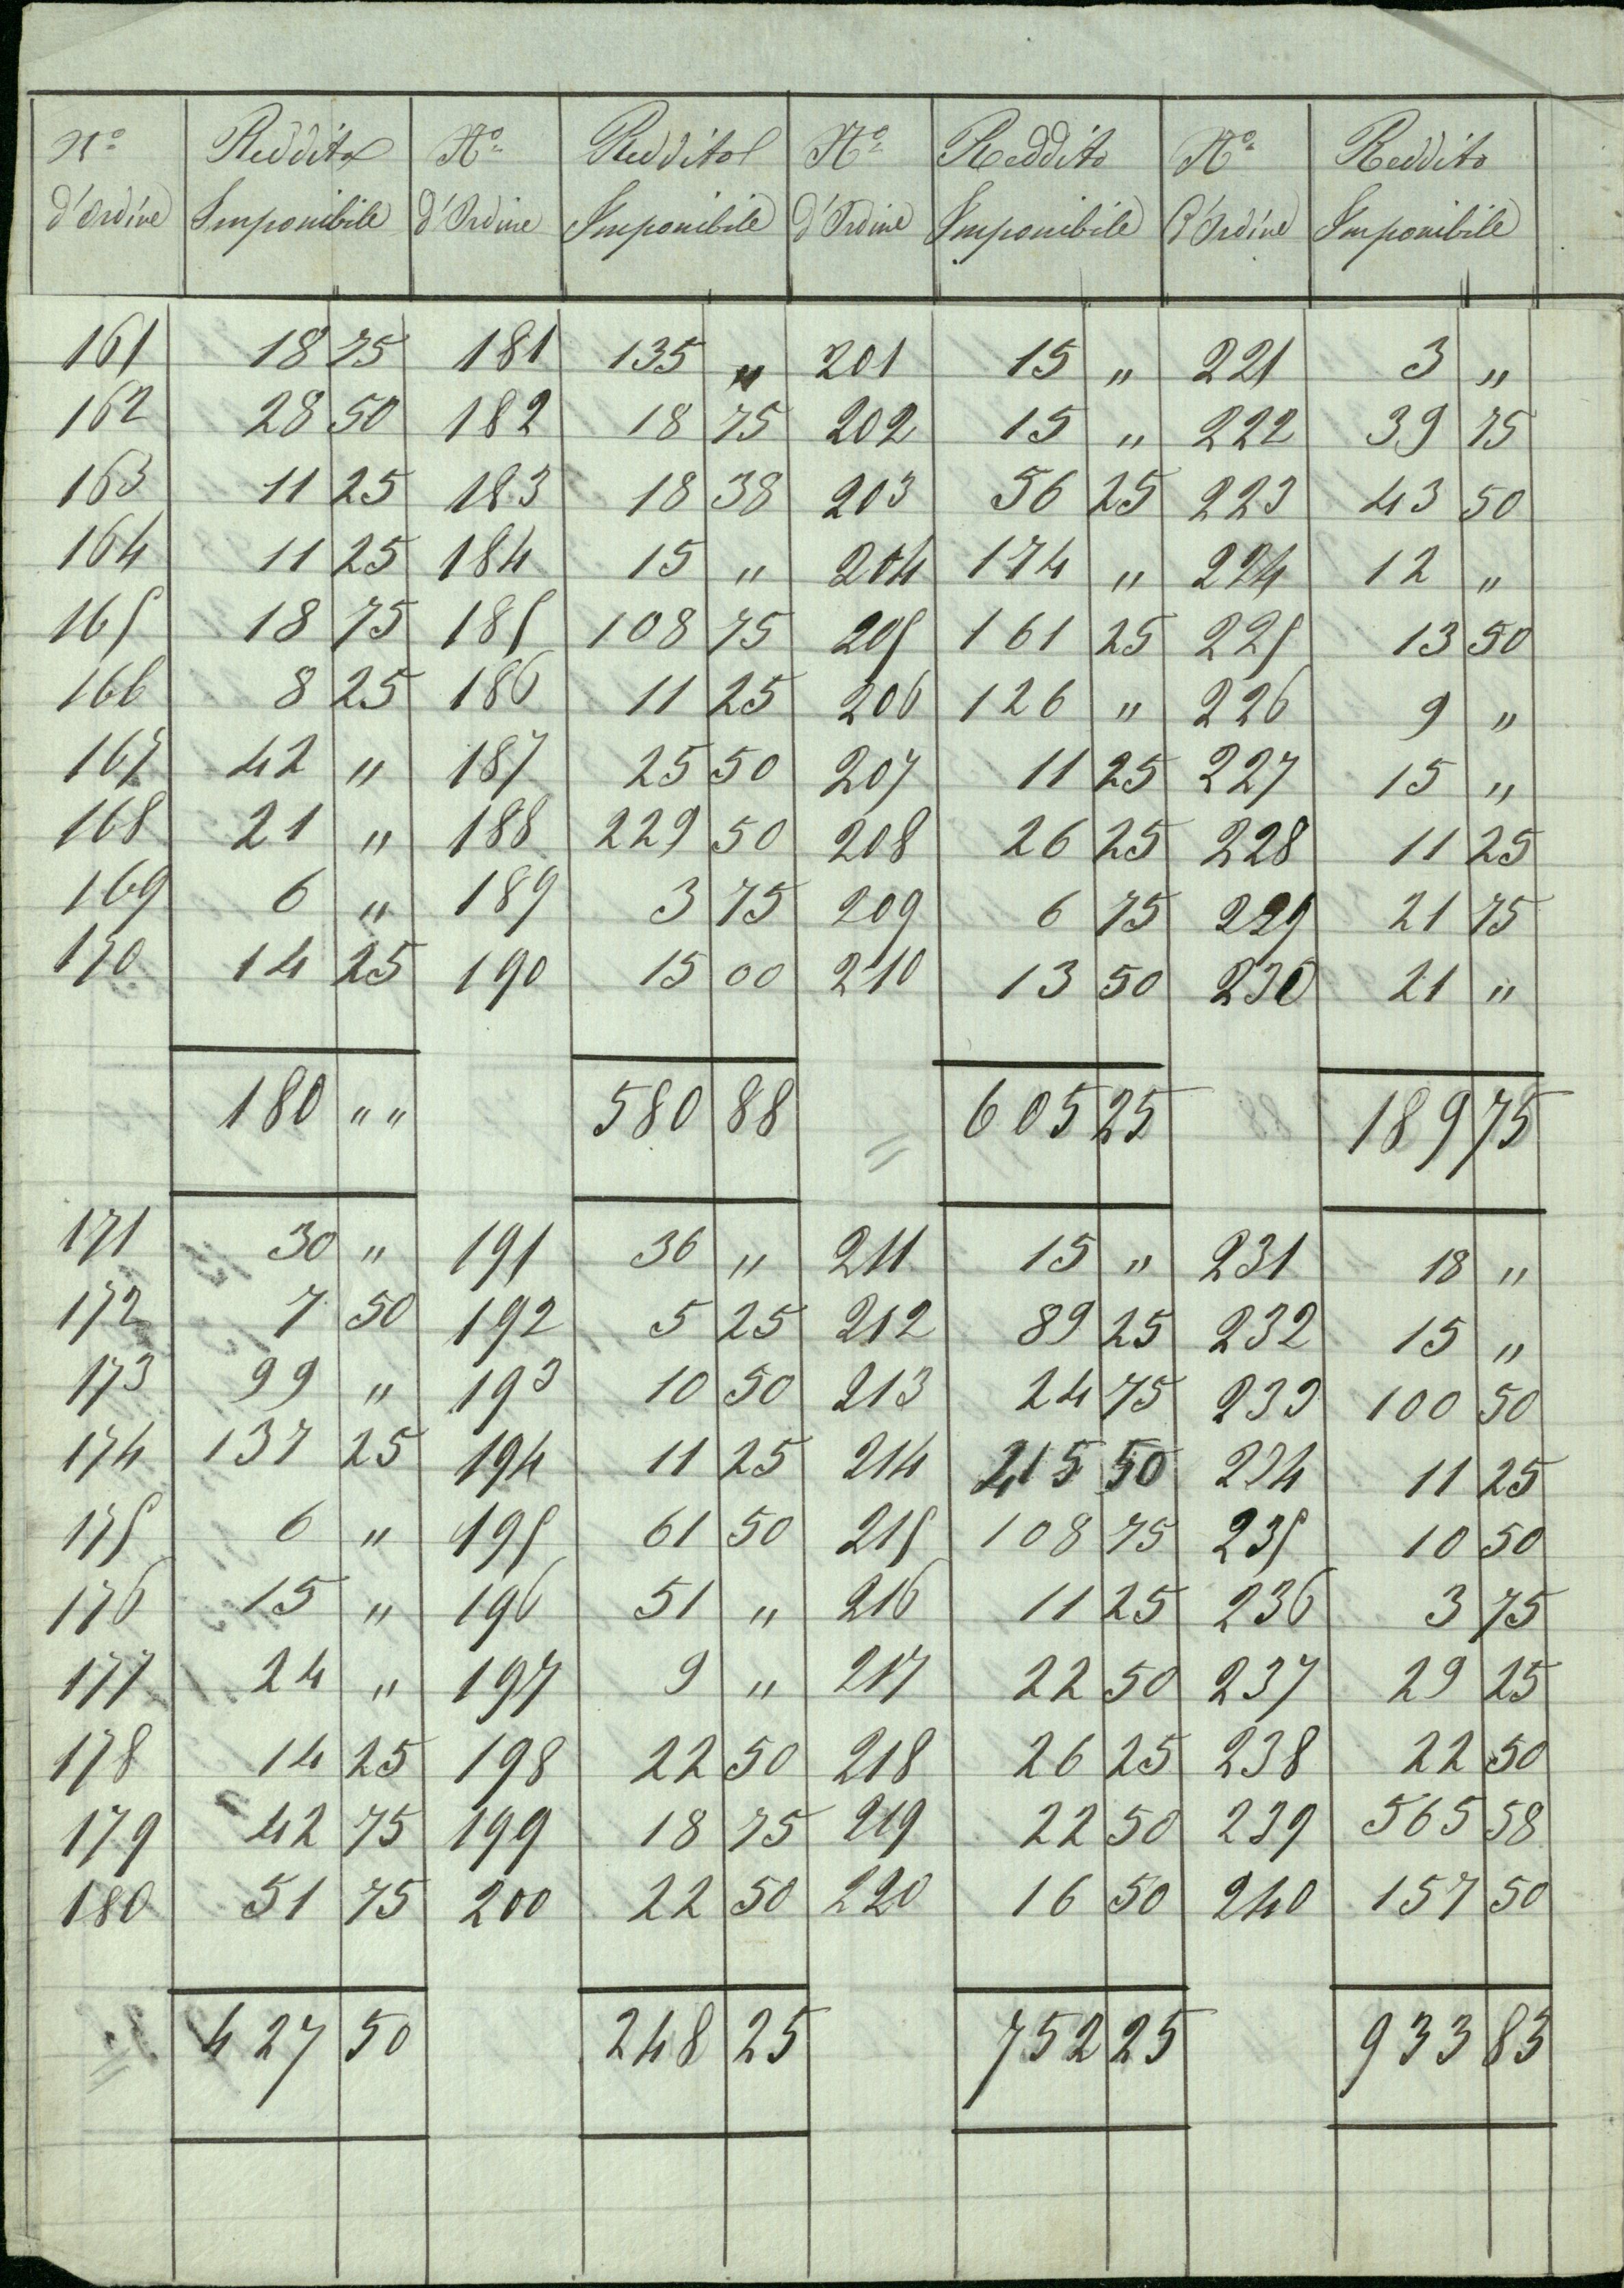 Nº Reddito Nº Reddito Nº Reddito Nº Reddito
d'Ordine Imponibile d'Ordine Imponibile d'Ordine Imponibile d'Ordine Imponibile
161 18 75 181 135 " 201 15 " 221 3 "
162 28 50 182 18 75 202 15 " 222 39 75
163 11 25 183 18 38 203 56 25 223 43 50
164 11 25 184 15 " 204 174 " 224 12 "
165 18 75 185 108 75 205 161 25 225 13 50
166 8 25 186 11 25 206 126 " 226 9 "
167 42 " 187 25 50 207 11 25 227 15 "
168 21 " 188 229 50 208 26 25 228 11 25
169 6 " 189 3 75 209 6 75 229 21 75
170 14 25 190 15 00 210 13 50 230 21 "
180 " " 580 88 605 25 189 75
171 30 " 191 36 " 211 15 " 231 18 "
172 7 50 192 5 25 212 89 25 232 15 "
173 99 " 193 10 50 213 24 75 233 100 50
174 137 25 194 11 25 214 415 50 234 11 25
175 6 " 195 61 50 215 108 75 235 10 50
176 15 " 196 51 " 216 11 25 236 3 75
177 24 " 197 9 " 217 22 50 237 29 25
178 14 25 198 22 50 218 26 25 238 22 50
179 42 75 199 18 75 219 22 50 239 565 58
180 51 75 200 22 50 220 16 50 240 157 50
427 50 248 25 752 25 933 83